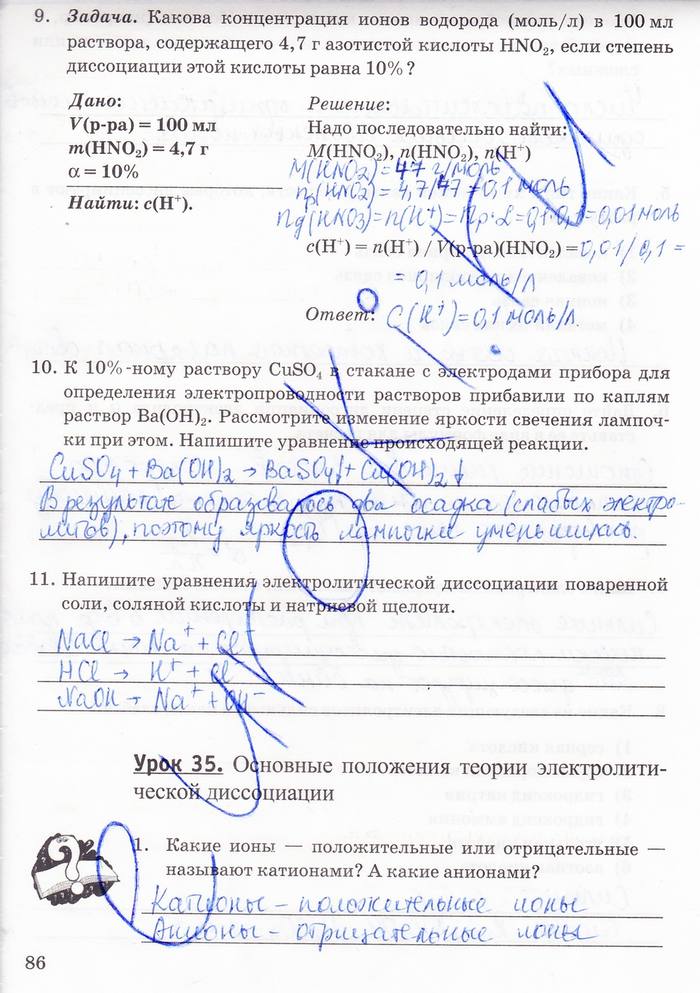 9. Задача. Какова концентрация ионов водорода (моль/л) в 100 мл
раствора, содержащего 4,7 г азотистой кислоты HNO₂, если степень
диссоциации этой кислоты равна 10% ?
Дано:
V(р-ра) = 100 мл
m(HNO₂) = 4,7 г
α = 10%
Найти: c(H⁺).
Решение:
Надо последовательно найти:
M(HNO₂), n(HNO₂), n(H⁺)
M(HNO₂)=47 г/моль
nр(HNO₂)=4,7/47=0,1 моль
nд(HNO₃)=n(H⁺)=nр·α=0,1·0,1=0,01 моль
c(H⁺) = n(H⁺) / V(р-ра)(HNO₂) = 0,01/0,1 =
= 0,1 моль/л
Ответ: C(H⁺)=0,1 моль/л
10. К 10%-ному раствору CuSO₄ в стакане с электродами прибора для
определения электропроводности растворов прибавили по каплям
раствор Ba(OH)₂. Рассмотрите изменение яркости свечения лампоч-
ки при этом. Напишите уравнение происходящей реакции.
CuSO₄ + Ba(OH)₂ → BaSO₄↓ + Cu(OH)₂↓
В результате образовалось два осадка (слабых электро-
литов), поэтому яркость лампочки уменьшилась.
11. Напишите уравнения электролитической диссоциации поваренной
соли, соляной кислоты и натриевой щелочи.
NaCl → Na⁺ + Cl⁻
HCl → H⁺ + Cl⁻
NaOH → Na⁺ + OH⁻
Урок 35. Основные положения теории электролити-
ческой диссоциации
1. Какие ионы — положительные или отрицательные —
называют катионами? А какие анионами?
Катионы – положительные ионы
Анионы – отрицательные ионы
86